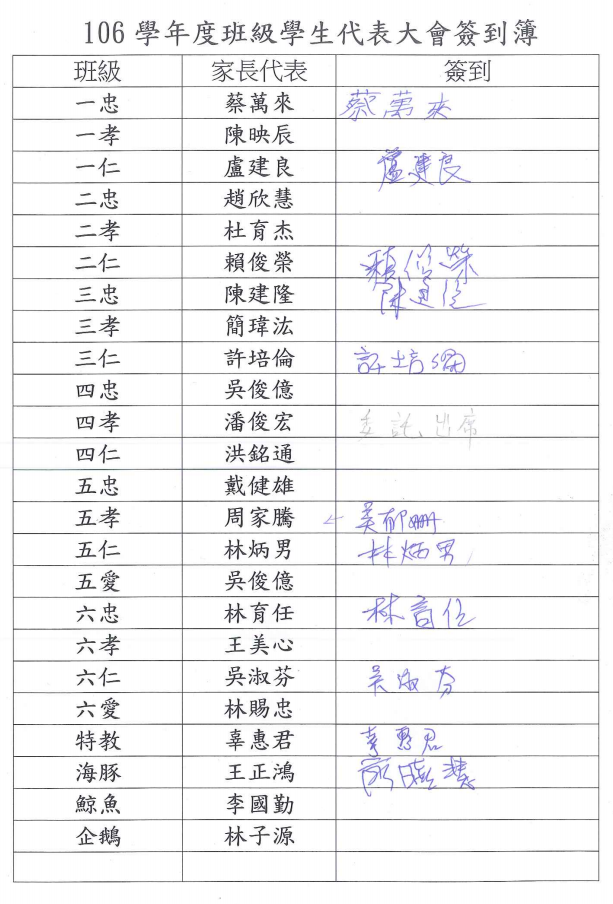 106 學年度班級學生代表大會簽到簿
班級 家長代表 簽到
一忠 蔡萬來 蔡萬來
一孝 陳映辰
一仁 盧建良 盧建良
二忠 趙欣慧
二孝 杜育杰
二仁 賴俊榮 賴俊榮
三忠 陳建隆 陳建隆
三孝 簡瑋汯
三仁 許培倫 許培倫
四忠 吳俊億
四孝 潘俊宏 委託出席
四仁 洪銘通
五忠 戴健雄
五孝 周家騰 ← 吳郁珊
五仁 林炳男 林炳男
五愛 吳俊億
六忠 林育任 林育任
六孝 王美心
六仁 吳淑芬 吳淑芬
六愛 林賜忠
特教 辜惠君 辜惠君
海豚 王正鴻
鯨魚 李國勤
企鵝 林子源